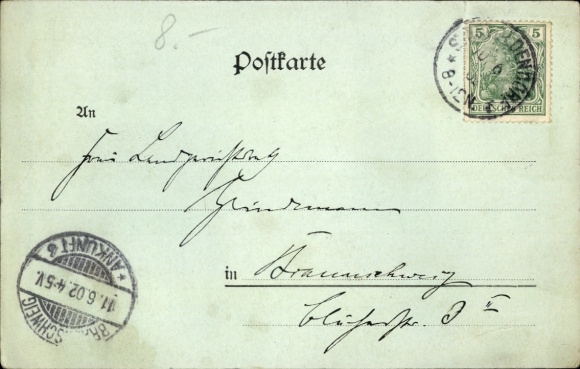 8.-
Postkarte
5 5
DEUTSCHES REICH
An
Frau Landgerichtsrat
in Braunschweig
Blücherstr. 3 II
* ANKUNFT *
11.6.02. 4-5V.
BRAUNSCHWEIG